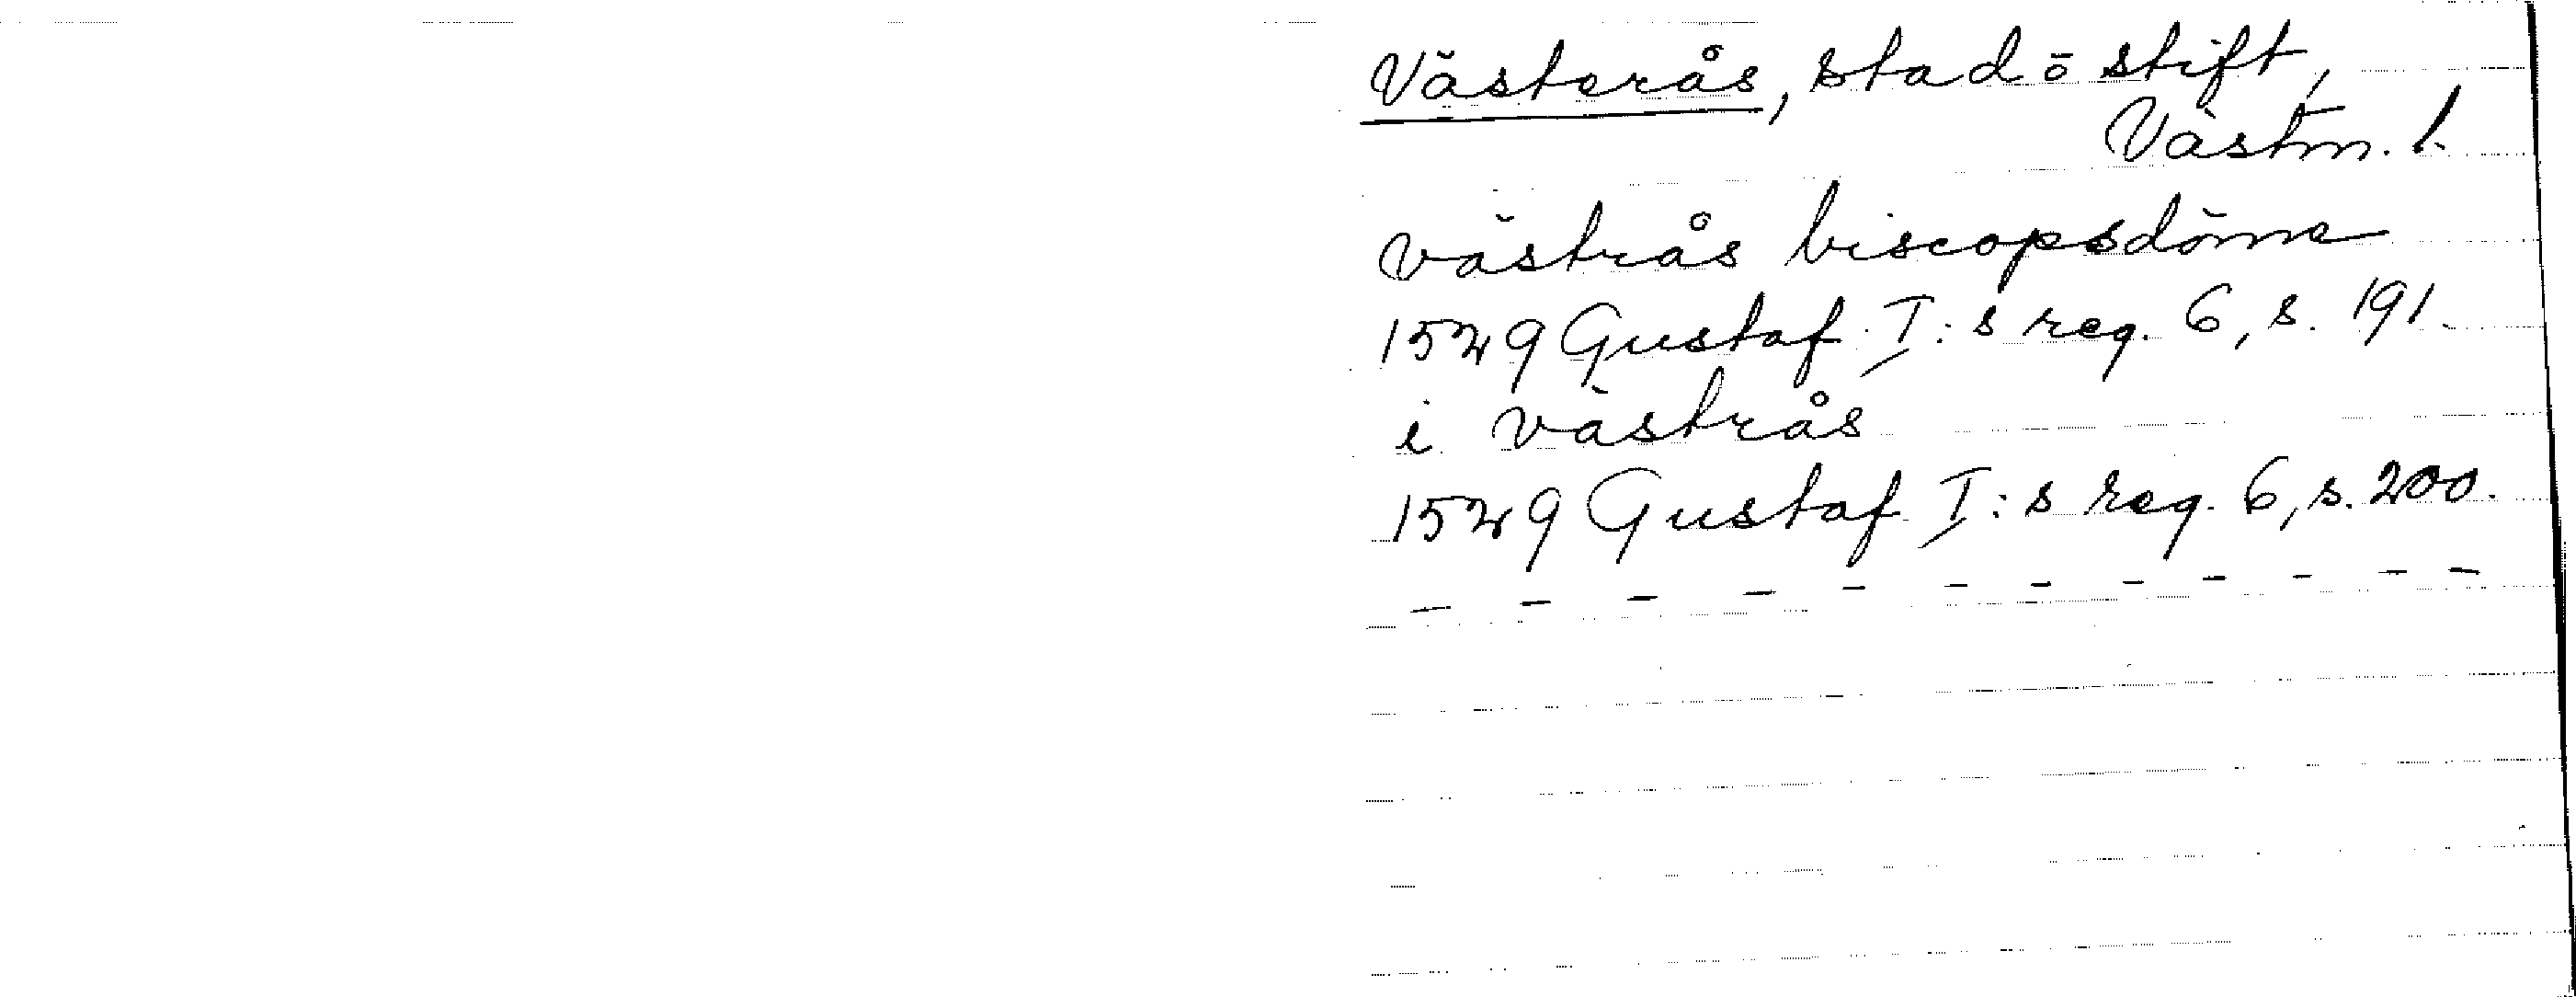 Västerås, stad ō stift,
Västm. l.
västrås biscopsdöme
1529 Gustaf I:s reg. 6, s. 191.
i västrås
1529 Gustaf I:s reg. 6, s. 200.